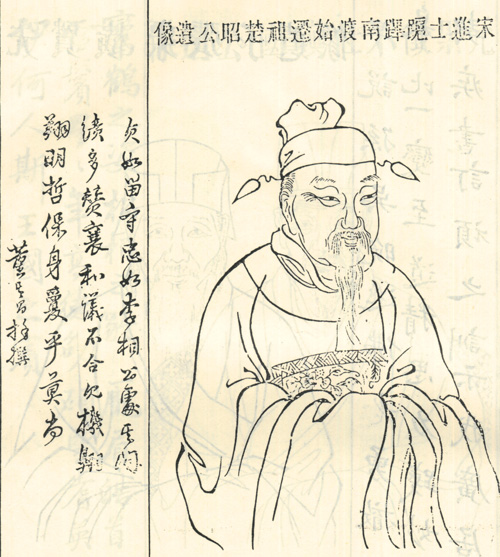 宋進士扈蹕南渡始遷祖楚昭公遺像
貞如留守忠如李相公處其間
績多贊襄和議不合見機翱
翔明哲保身夐乎莫尚
董其昌拜撰